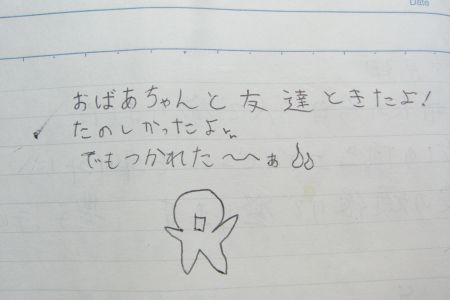 Date
おばあちゃんと友達ときたよ!
たのしかったよ
でもつかれた〜〜ぁ